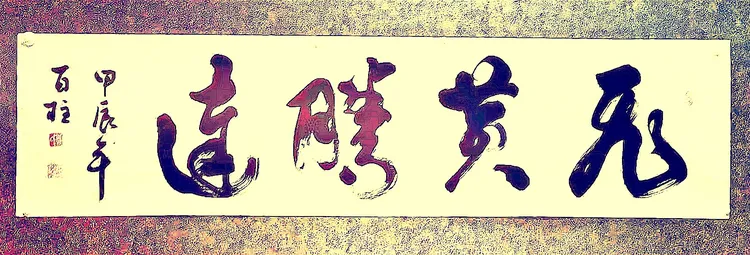 飛黃騰達
甲辰年
百柱